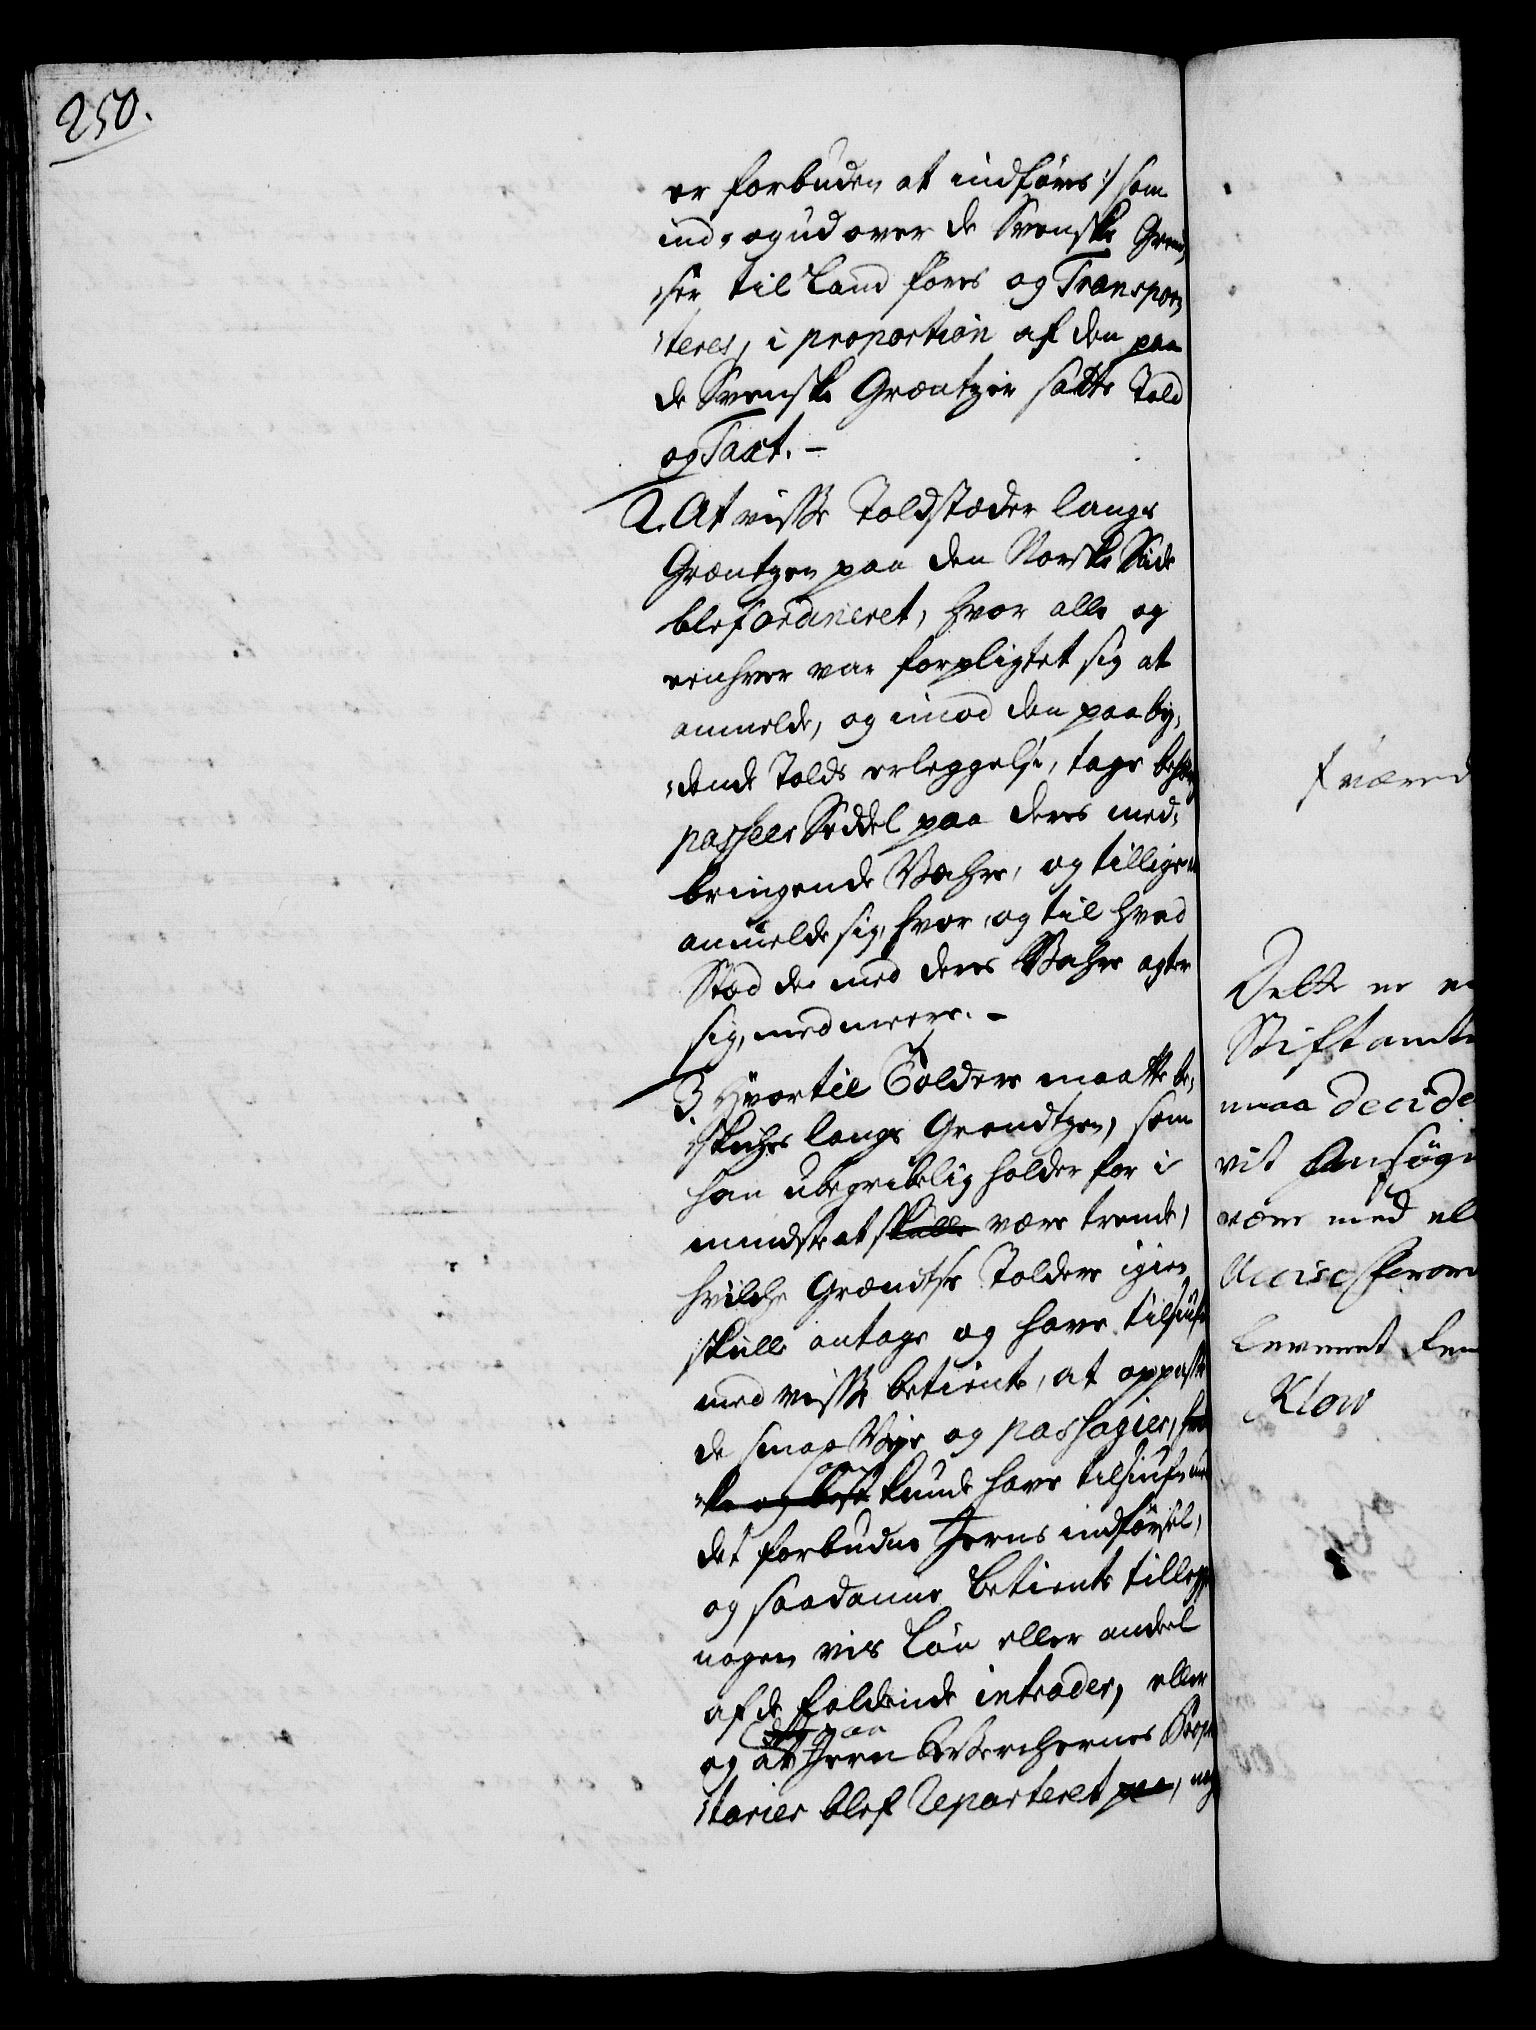 250.
er forbuden at indføres :/ som
ind- og ud over de Svenske Græn-
-ser til Land føres og Transpor-
-teres, i proportion af den paa
de Svenske Græntzer satte Told
og Taxt. -
2. At visse Toldstæder langs
Græntzen paa den Norske Side
blef ordineret, hvor alle og
eenhver var forpligtet sig at
anmelde, og imod den paaby-
-dende Tolds erleggelse, tage
passeer Seddel paa deres med-
bringende Vahre, og tillige
anmelde sig, hvor, og til hvad
Stæd de med deres Vahre agter
sig, med meere. -
3. Hvortil Toldere maatte be-
-skiches langs Grendtzen, som
han ubegribelig holder for i
mindste at skulle være trende,
hvilche Grændtse Toldere igien
skulle antage og have tilsiufn
med visse betiente, at oppasse
de smaa Veye og passagier,
og kunde have tilsiufn
det forbudne Jerns indførsel,
og saadanne betiente tillegge
nogen vis Løn eller andeel
af de faldende intrader, eller
og paa Jern Werchernes
-tarier blef Reparteret paa,
f værend
Dette er
Stiftamt
maa decide
vit Ansøgn
være med el
Accise Foror
leveret
Klow